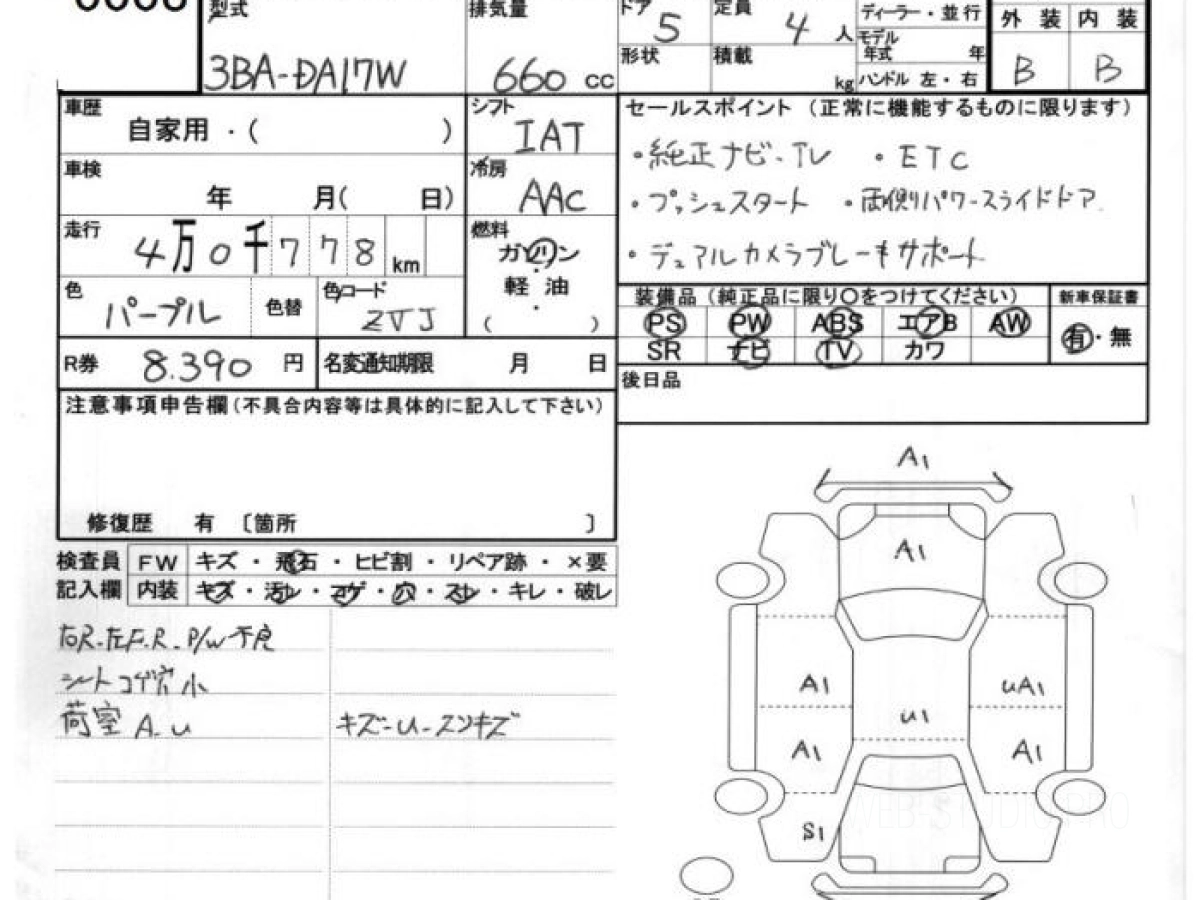 型式 3BA-DA17W
排気量 660 cc
ドア 5
形状
定員 4 人
積載 kg
ディーラー・並行
モデル年式 年
ハンドル 左・右
外装 内装
B B
車歴 自家用・( )
シフト IAT
車検 年 月( 日)
冷房 AAC
走行 4万0千778 km
燃料 ガソリン
・
軽油
・
( )
色 パープル
色替
色コード ZVJ
R券 8.390 円
名変通知期限 月 日
セールスポイント (正常に機能するものに限ります)
・純正ナビ・TV ・ETC
・プッシュスタート ・両側パワースライドドア
・デュアルカメラブレーキサポート
装備品(純正品に限り○をつけてください)
新車保証書
PS PW ABS エアB AW
有・無
SR ナビ TV カワ
後日品
注意事項申告欄(不具合内容等は具体的に記入して下さい)
修復歴 有 〔箇所 〕
検査員 FW キズ・飛石・ヒビ割・リペア跡・×要
記入欄 内装 キズ・汚レ・コゲ・穴・スレ・キレ・破レ
右R.左F.R. P/W不良
シートコゲ穴小
荷室 A.U
キズ-U-スリキズ
A1
A1
A1 UA1
U1
A1 A1
S1
WEB-STUDIO.PRO